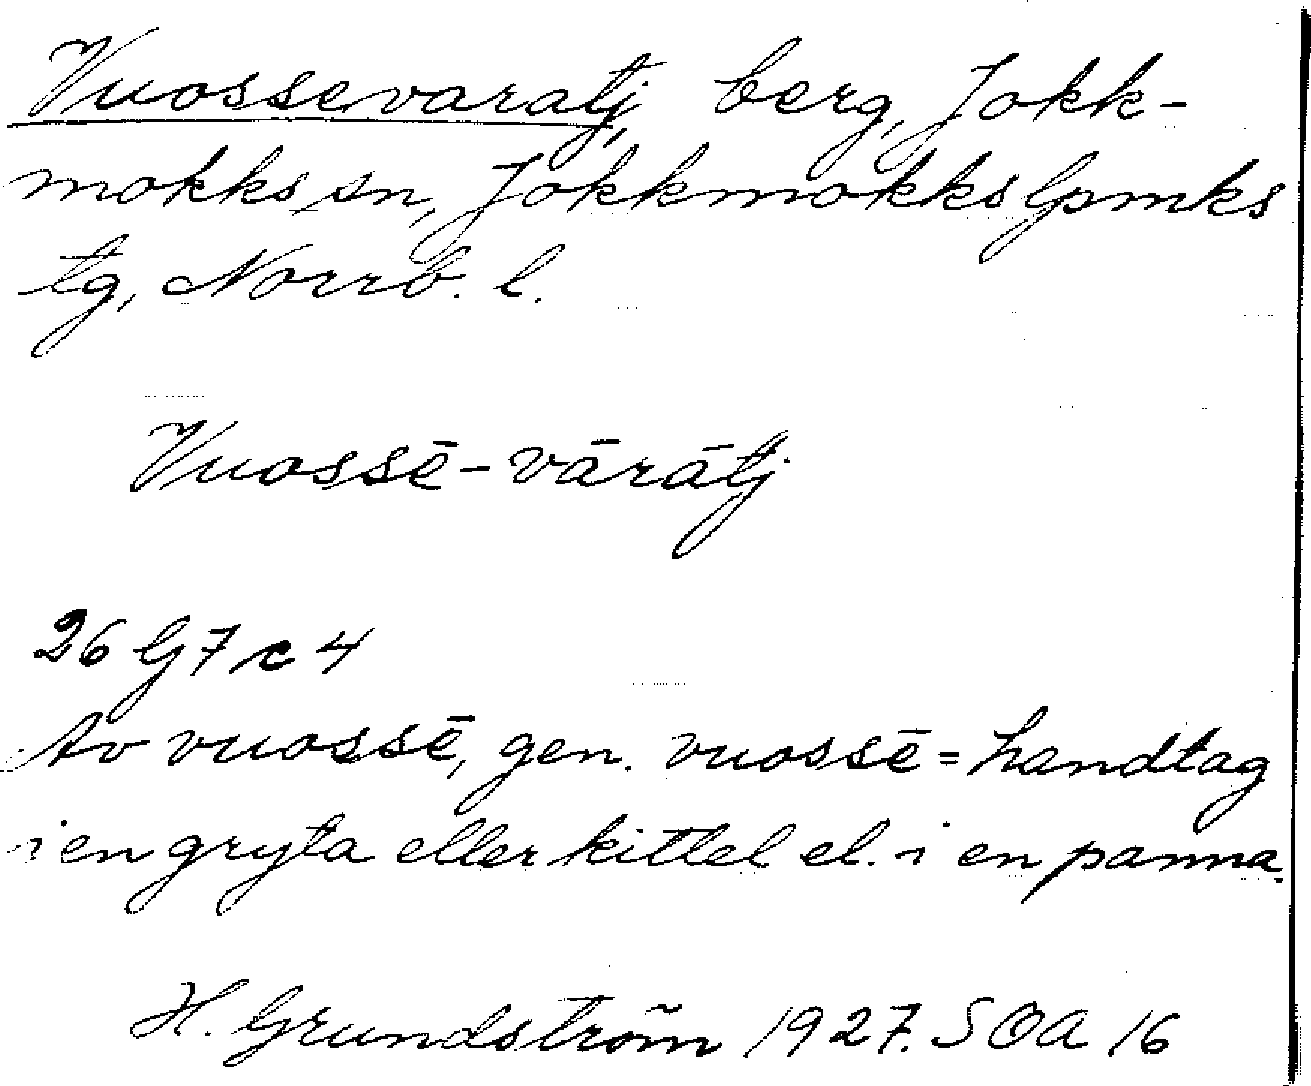 Vuossevaratj, berg, Jokk-
mokks sn, Jokkmokks lpmks
tg, Norrb. l.
Vuossē-vāràtj
26 G 7 c 4
Av vuossē, gen. vuossē = handtag
i en gryta eller kittel el. i en panna.
H. Grundström 1927. SOA 16